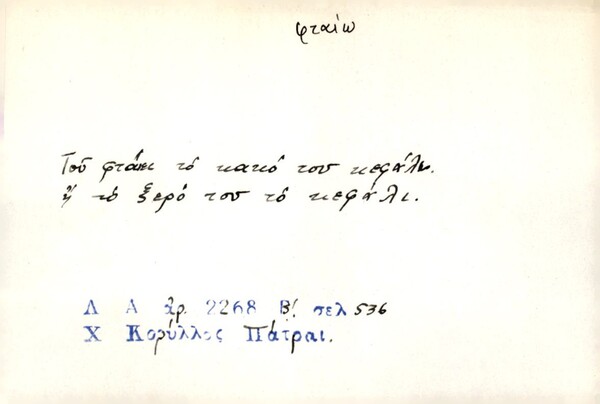 φταίω
Τοῦ φταίει τό κακό του κεφάλι.
ἤ τό ξερό του τό κεφάλι.
Λ Α ἀρ. 2268 Β! σελ 536
Χ Κορύλλος Πάτραι.